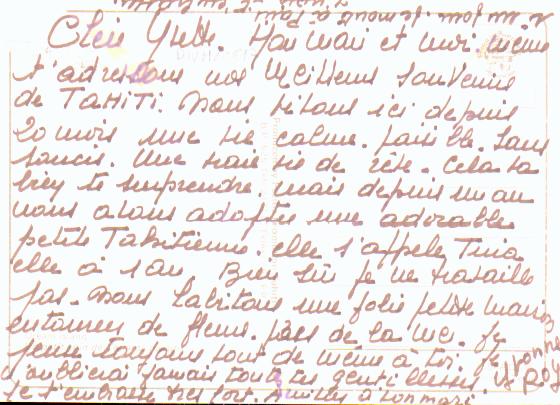 Chère Yvette. Mon mari et moi même
t'adressons nos meilleurs souvenirs
de TAHITI. Nous vivons ici depuis
20 mois une vie calme. paisible. sans
soucis. Une vraie vie de rêve. Cela va
bien te surprendre. mais depuis un an
nous avons adopter une adorable
petite Tahitienne. elle s'appelle
elle à 1 an. Bien sûr je ne travaille
pas. Nous habitons une jolie petite maison
entourée de fleurs. près de la mer. Je
pense toujours tout de même à toi. Je
n'oublierai jamais toutes tes gentillesses.
je t'embrasse très fort. Amitiés à ton mari
Yvonne
Roy